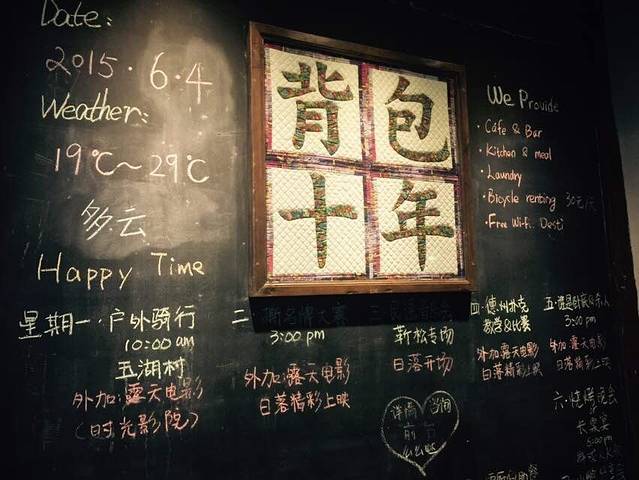 Date:
2015.6.4
Weather:
19℃~29℃
多云
Happy Time
背包
十年
We Provide
· Cafe & Bar
· Kitchen & meal
· Laundry
· Bicycle renting 30元/天
· Free Wi-Fi
星期一·户外骑行
10:00 am
五湖村
外加:露天电影
(时光影院)
二
3:00 pm
外加:露天电影
日落精彩上映
三
新松专场
日落开场
详询
前台
四·德州扑克
教学&比赛
外加露天电影
日落精彩上映
五·
3:00 pm
外加:露天电影
日落精彩上映
六·烧烤晚会
6:00 pm